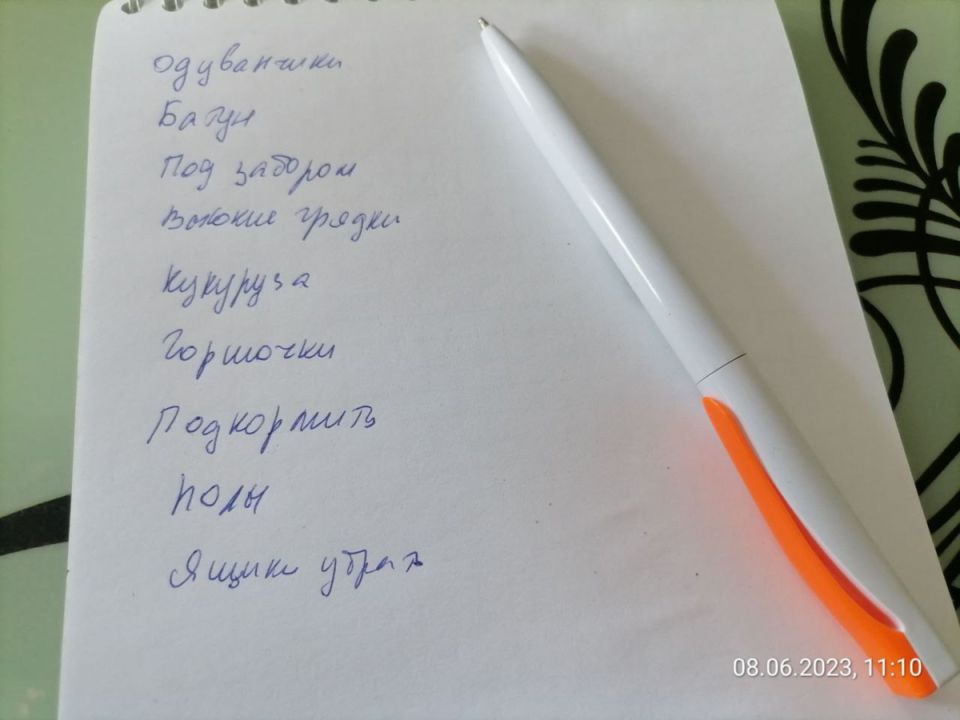 Одуванчики
Батун
Под забором
Высокие грядки
Кукуруза
Горшочки
Подкормить
Полы
Ящики убрать
08.06.2023, 11:10